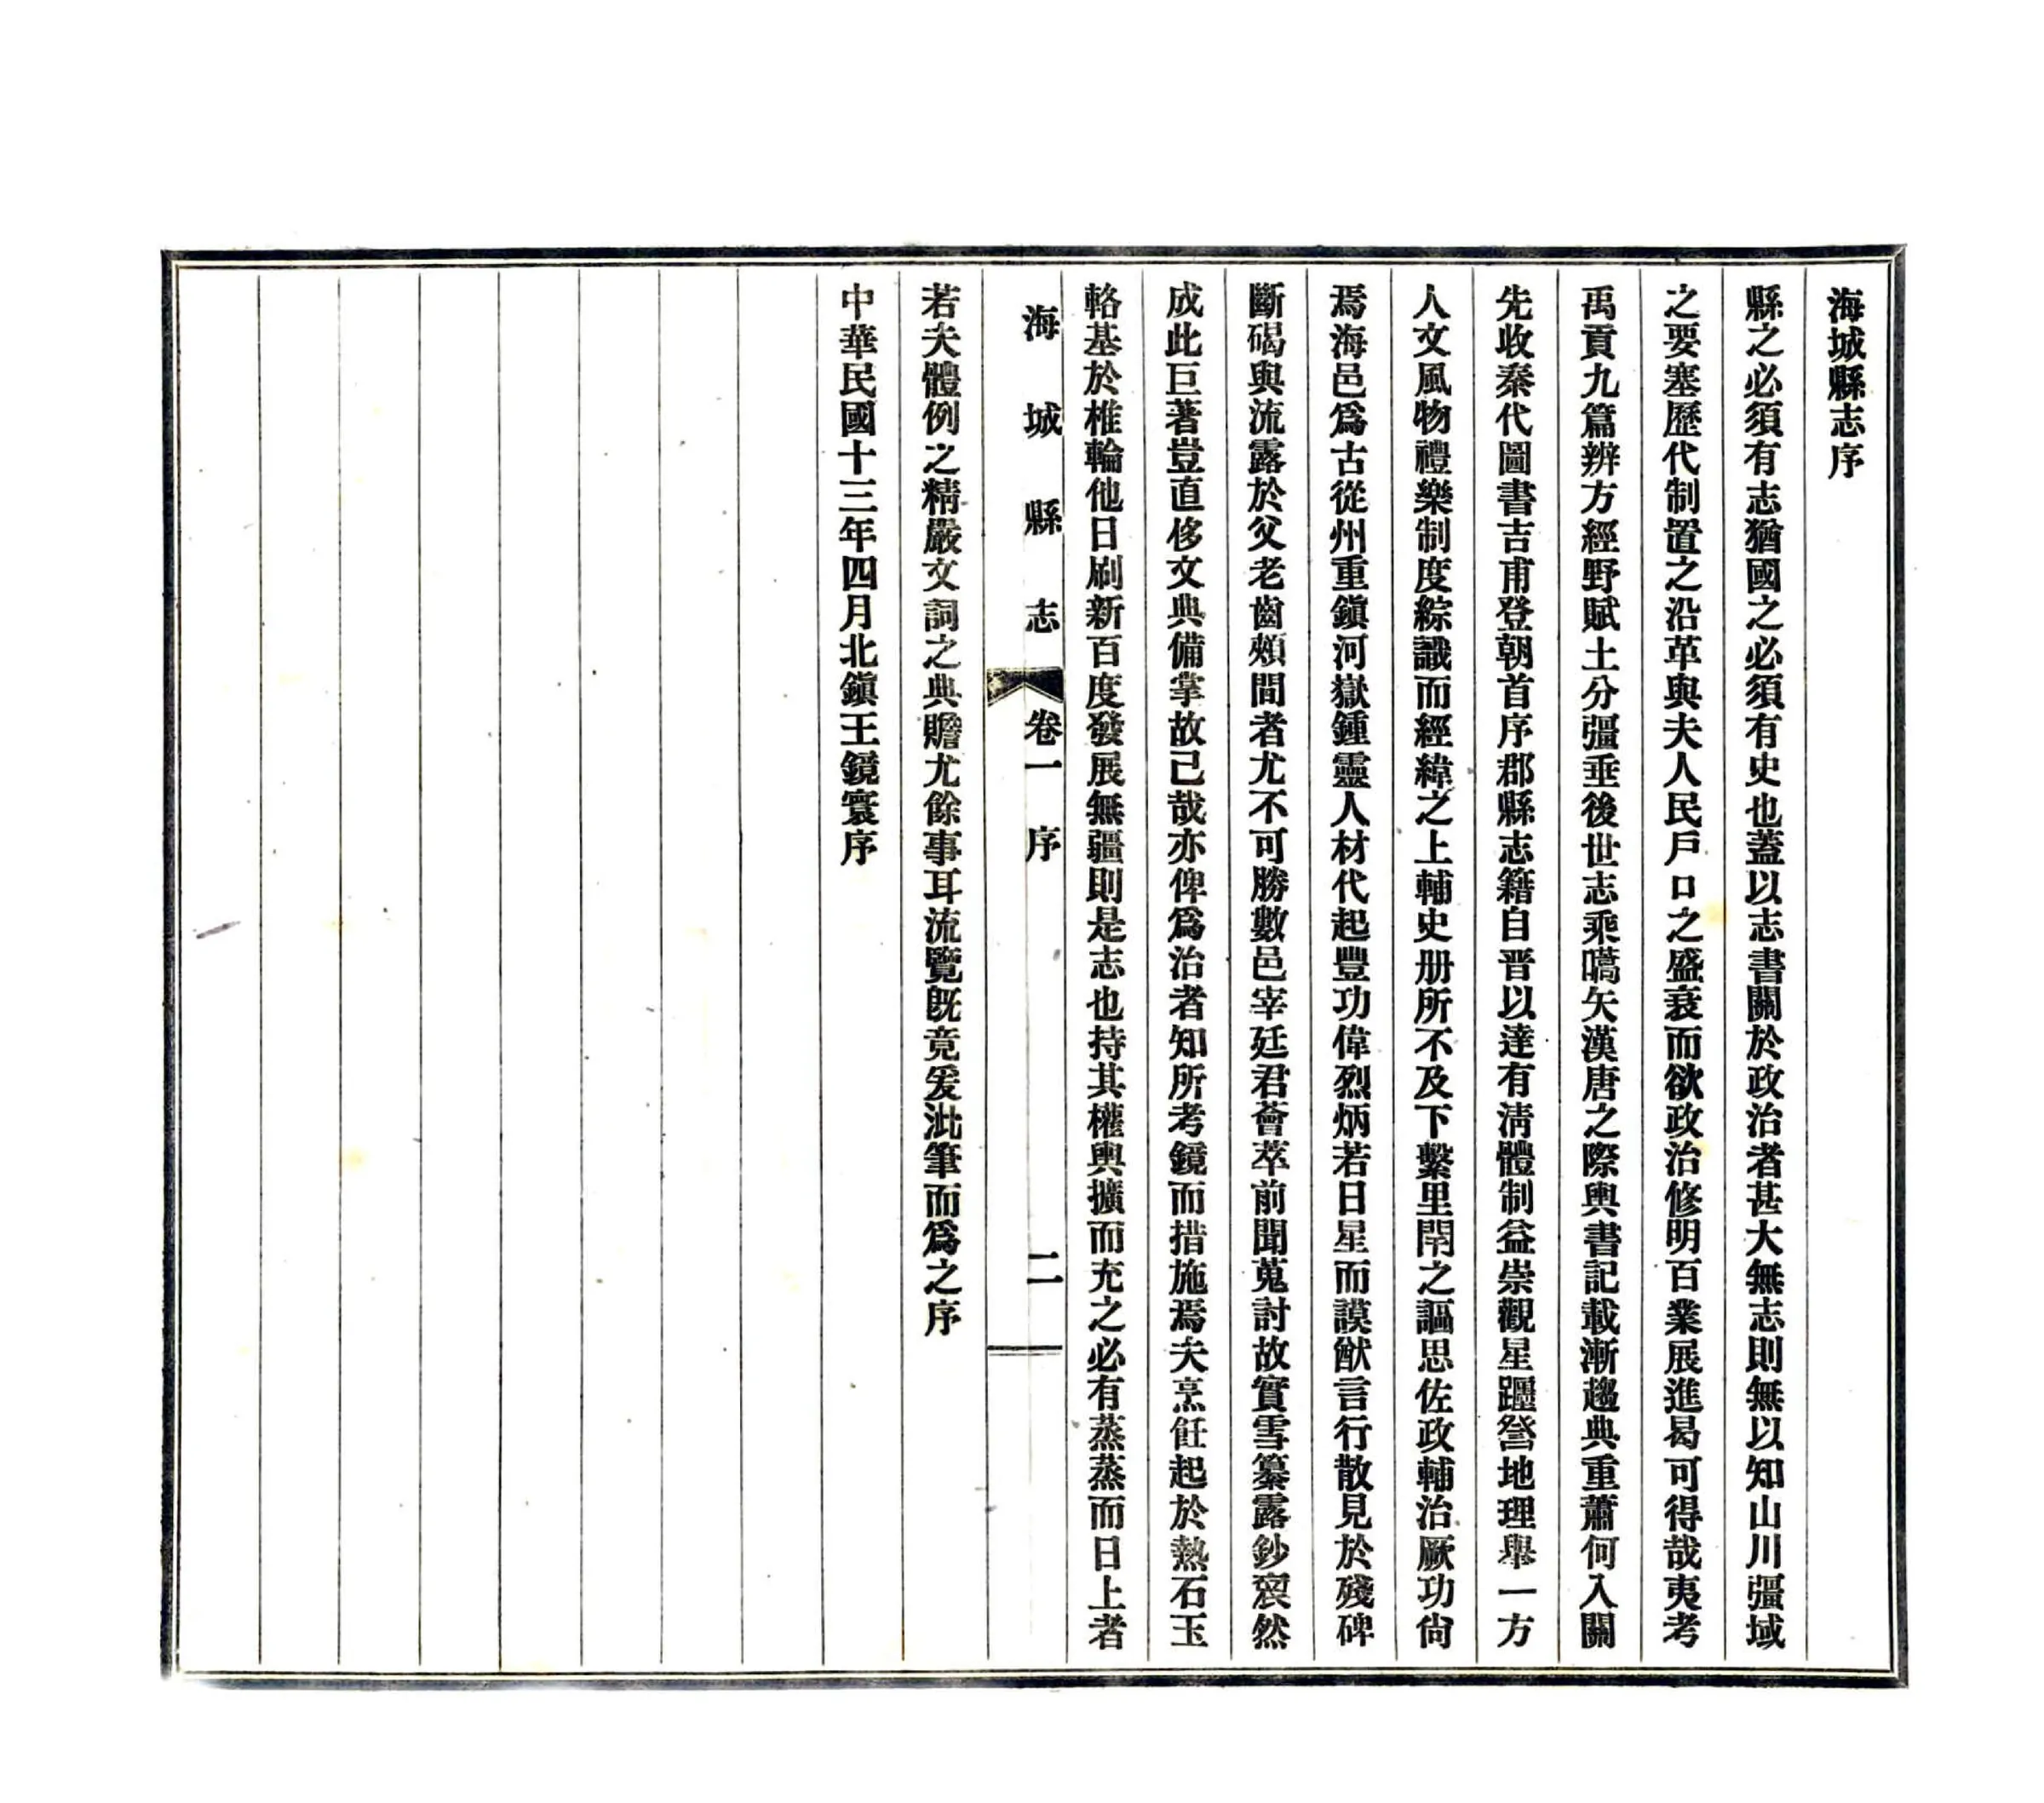 海城縣志序
縣之必須有志猶國之必須有史也蓋以志書關於政治者甚大無志則無以知山川疆域
之要塞歷代制置之沿革與夫人民戶口之盛衰而欲政治修明百業展進曷可得哉夷考
禹貢九篇辨方經野賦土分疆垂後世志乘嚆矢漢唐之際輿書記載漸趨典重蕭何入關
先收秦代圖書吉甫登朝首序郡縣志籍自晋以達有淸體制益崇觀星躔詧地理舉一方
人文風物禮樂制度綜識而經緯之上輔史册所不及下繫里閈之謳思佐政輔治厥功尙
焉海邑爲古從州重鎭河嶽鍾靈人材代起豐功偉烈炳若日星而謨猷言行散見於殘碑
斷碣與流露於父老齒頰間者尤不可勝數邑宰廷君薈萃前聞蒐討故實雪纂露鈔裒然
成此巨著豈直侈文典備掌故已哉亦俾爲治者知所考鏡而措施焉夫烹飪起於熱石玉
輅基於椎輪他日刷新百度發展無疆則是志也持其權輿擴而充之必有蒸蒸而日上者
海城縣志 卷一 序 二
若夫體例之精嚴文詞之典贍尤餘事耳流覽旣竟爰泚筆而爲之序
中華民國十三年四月北鎭王鏡寰序